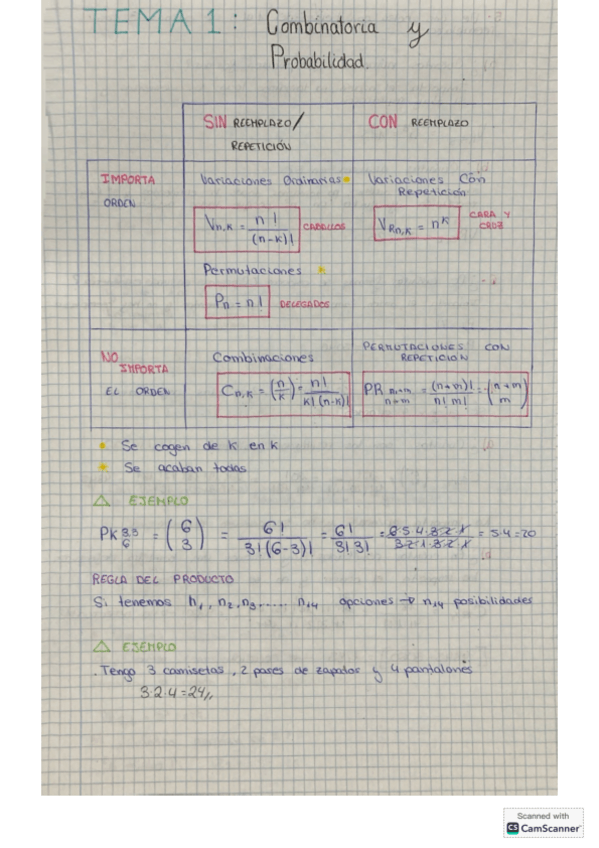 TEMA 1: Combinatoria y
Probabilidad.
SIN REEMPLAZO/
REPETICIÓN
CON REEMPLAZO
IMPORTA
ORDEN
Variaciones Ordinarias
V n,k = n! / (n-k)! CABALLOS
Permutaciones
Pn = n! DELEGADOS
Variaciones Con
Repetición
V Rn,k = n^k CARA Y
CRUZ
NO
IMPORTA
EL ORDEN
Combinaciones
C n,k = (n/k) = n! / k! (n-k)!
PERMUTACIONES CON
REPETICIÓN
PR n,m / n+m = (n+m)! / n! m! = (n+m / m)
Se cogen de k en k
Se acaban todas
△ EJEMPLO
PK 3,3 / 6 = (6 / 3) = 6! / 3! (6-3)! = 6! / 3! 3! = 6·5·4·3·2·1 / 3·2·1·3·2·1 = 5·4=20
REGLA DEL PRODUCTO
Si tenemos n1, n2, n3..... n,4 opciones → n,4 posibilidades
△ EJEMPLO
. Tengo 3 camisetas, 2 pares de zapatos y 4 pantalones
3·2·4=24//
Scanned with
CS CamScanner